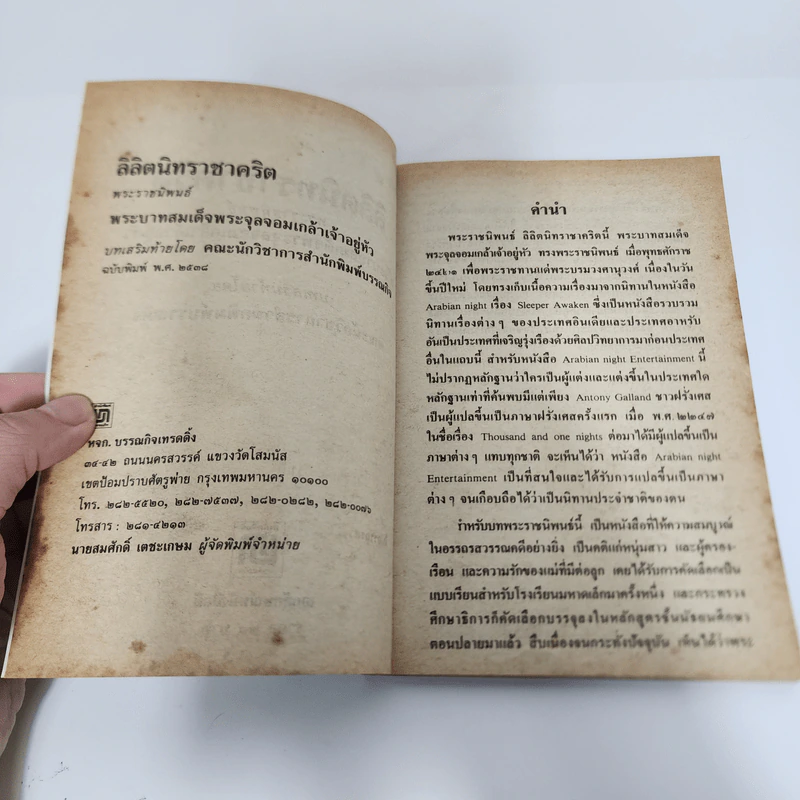 ลิลิตนิทราชาคริต
พระราชนิพนธ์
พระบาทสมเด็จพระจุลจอมเกล้าเจ้าอยู่หัว
บทเสริมท้ายโดย คณะนักวิชาการสำนักพิมพ์บรรณกิจ
ฉบับพิมพ์ พ.ศ. ๒๕๓๘
หจก. บรรณกิจเทรดดิ้ง
๓๔-๔๒ ถนนนครสวรรค์ แขวงวัดโสมนัส
เขตป้อมปราบศัตรูพ่าย กรุงเทพมหานคร ๑๐๑๐๐
โทร. ๒๘๒-๕๕๒๐, ๒๘๒-๗๕๓๗, ๒๘๒-๐๒๘๒, ๒๘๒-๐๐๗๖
โทรสาร : ๒๘๑-๔๒๑๓
นายสมศักดิ์ เตชะเกษม ผู้จัดพิมพ์จำหน่าย
คำนำ
พระราชนิพนธ์ ลิลิตนิทราชาคริตนี้ พระบาทสมเด็จ
พระจุลจอมเกล้าเจ้าอยู่หัว ทรงพระราชนิพนธ์ เมื่อพุทธศักราช
เพื่อพระราชทานแด่พระบรมวงศานุวงศ์ เนื่องในวัน
ขึ้นปีใหม่ โดยทรงเก็บเนื้อความเรื่องมาจากนิทานในหนังสือ
Arabian night เรื่อง Sleeper Awaken ซึ่งเป็นหนังสือรวบรวม
นิทานเรื่องต่าง ๆ ของประเทศอินเดียและประเทศอาหรับ
อันเป็นประเทศที่เจริญรุ่งเรืองด้วยศิลปวิทยาการมาก่อนประเทศ
อื่นในแถบนี้ สำหรับหนังสือ Arabian night Entertainment นี้
ไม่ปรากฏหลักฐานว่าใครเป็นผู้แต่งและแต่งขึ้นในประเทศใด
หลักฐานเท่าที่ค้นพบมีแต่เพียง Antony Galland ชาวฝรั่งเศส
เป็นผู้แปลขึ้นเป็นภาษาฝรั่งเศสครั้งแรก เมื่อ พ.ศ. ๒๒๔๗
ในชื่อเรื่อง Thousand and one nights ต่อมาได้มีผู้แปลขึ้นเป็น
ภาษาต่าง ๆ แทบทุกชาติ จะเห็นได้ว่า หนังสือ Arabian night
Entertainment เป็นที่สนใจและได้รับการแปลขึ้นเป็นภาษา
ต่าง ๆ จนเกือบถือได้ว่าเป็นนิทานประจำชาติของตน
สำหรับบทพระราชนิพนธ์นี้ เป็นหนังสือที่ให้ความสมบูรณ์
ในอรรถรสวรรณคดีอย่างยิ่ง เป็นคติแก่หนุ่มสาว และผู้ครอง-
เรือน และความรักของแม่ที่มีต่อลูก เคยได้รับการคัดเลือกเป็น
แบบเรียนสำหรับโรงเรียนมหาดเล็กมาครั้งหนึ่ง และกระทรวง
ศึกษาธิการก็คัดเลือกบรรจุลงในหลักสูตรชั้นมัธยมศึกษา
ตอนปลายมาแล้ว สืบเนื่องจนกระทั่งปัจจุบัน เห็นได้ว่าพระ